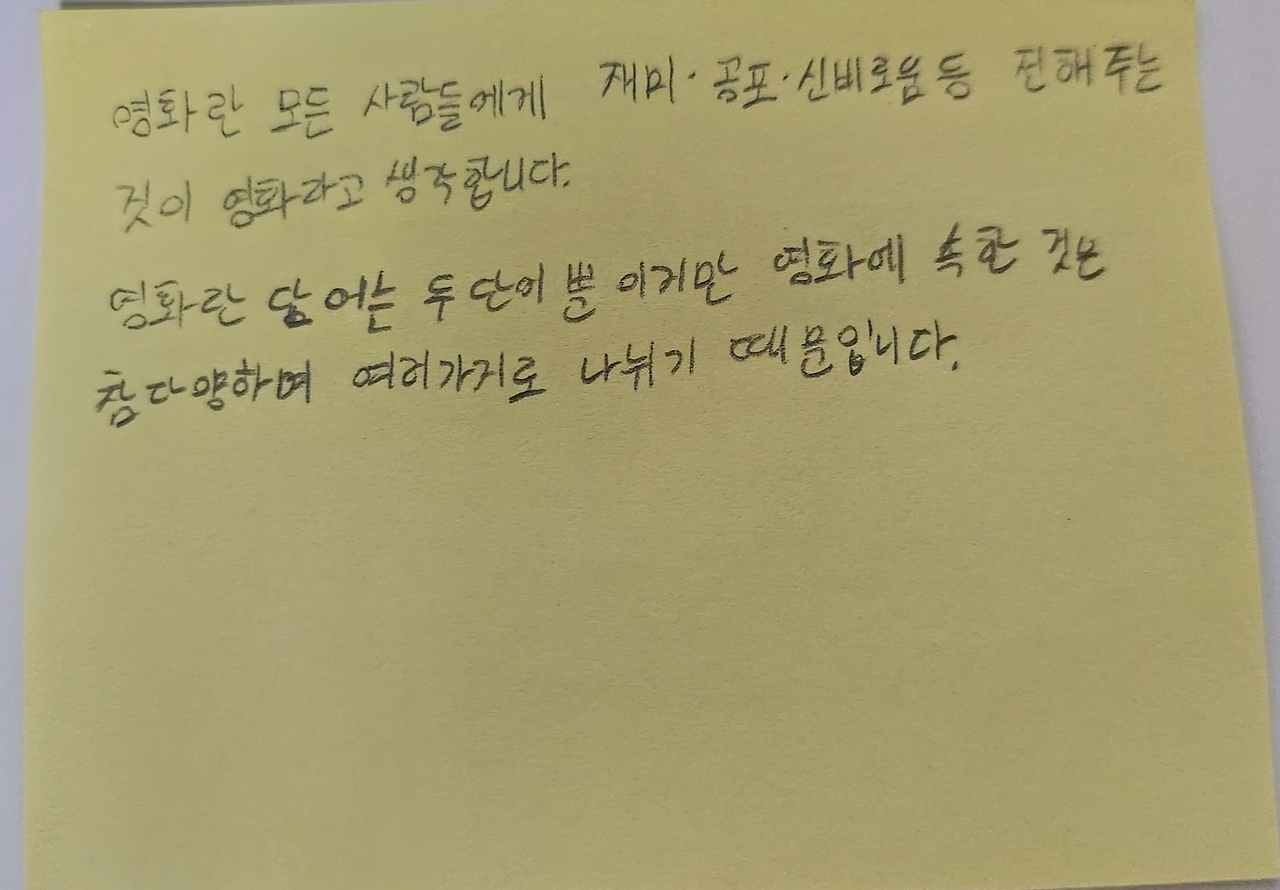 영화란 모든 사람들에게 재미·공포·신비로움등 전해주는
것이 영화라고 생각합니다.
영화란 닿어는 두단이 뿐 이지만 영화에 속한 것은
참다양하며 여러가지로 나뉘기 때문입니다.